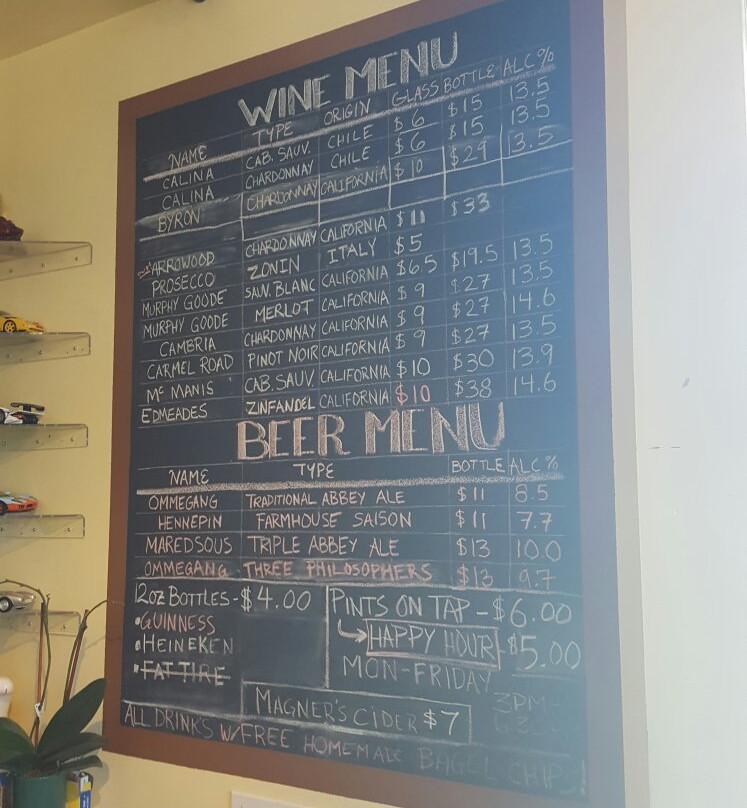 WINE MENU
NAME TYPE ORIGIN GLASS BOTTLE ALC %
CALINA CAB. SAUV. CHILE $6 $15 13.5
CALINA CHARDONNAY CHILE $6 $15 13.5
BYRON CHARDONNAY CALIFORNIA $10 $29 13.5
ARROWOOD CHARDONNAY CALIFORNIA $11 $33
PROSECCO ZONIN ITALY $5
MURPHY GOODE SAUV. BLANC CALIFORNIA $6.5 $19.5 13.5
MURPHY GOODE MERLOT CALIFORNIA $9 $27 13.5
CAMBRIA CHARDONNAY CALIFORNIA $9 $27 14.6
CARMEL ROAD PINOT NOIR CALIFORNIA $9 $27 13.5
Mc MANIS CAB. SAUV. CALIFORNIA $10 $30 13.9
EDMEADES ZINFANDEL CALIFORNIA $10 $38 14.6
BEER MENU
NAME TYPE BOTTLE ALC %
OMMEGANG TRADITIONAL ABBEY ALE $11 8.5
HENNEPIN FARMHOUSE SAISON $11 7.7
MAREDSOUS TRIPLE ABBEY ALE $13 10.0
OMMEGANG THREE PHILOSOPHERS $13 9.7
12oz BOTTLES - $4.00
•GUINNESS
•HEINEKEN
•FAT TIRE
PINTS ON TAP - $6.00
HAPPY HOUR - $5.00
MON-FRIDAY
3PM-
MAGNER'S CIDER $7
ALL DRINKS W/FREE HOMEMADE BAGEL CHIPS!